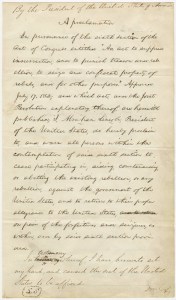 By the President of the United States of America
A proclamation
In pursuance of the sixth section of the
Act of Congress entitled "An act to suppress
insurrection, and to punish treason and re-
bellion, to seize and confiscate property of
rebels, and for other purposes" Approved
July 17, 1862, and which act, and the joint
Resolution explanatory thereof, are herewith
published, I, Abraham Lincoln, President
of the United States, do hereby proclaim
to, and warn all persons within the
contemplation of said sixth section to
cease participating in, aiding, countenancing
or abetting the existing rebellion, or any
rebellion against the government of the
United States, and to return to their proper
allegiance to the United States,
on pain of the forfeitures and seizures, as
within and by said sixth section pro-
vided
In testimony whereof, I have hereunto set
my hand and caused the seal of the United
States to be affixed